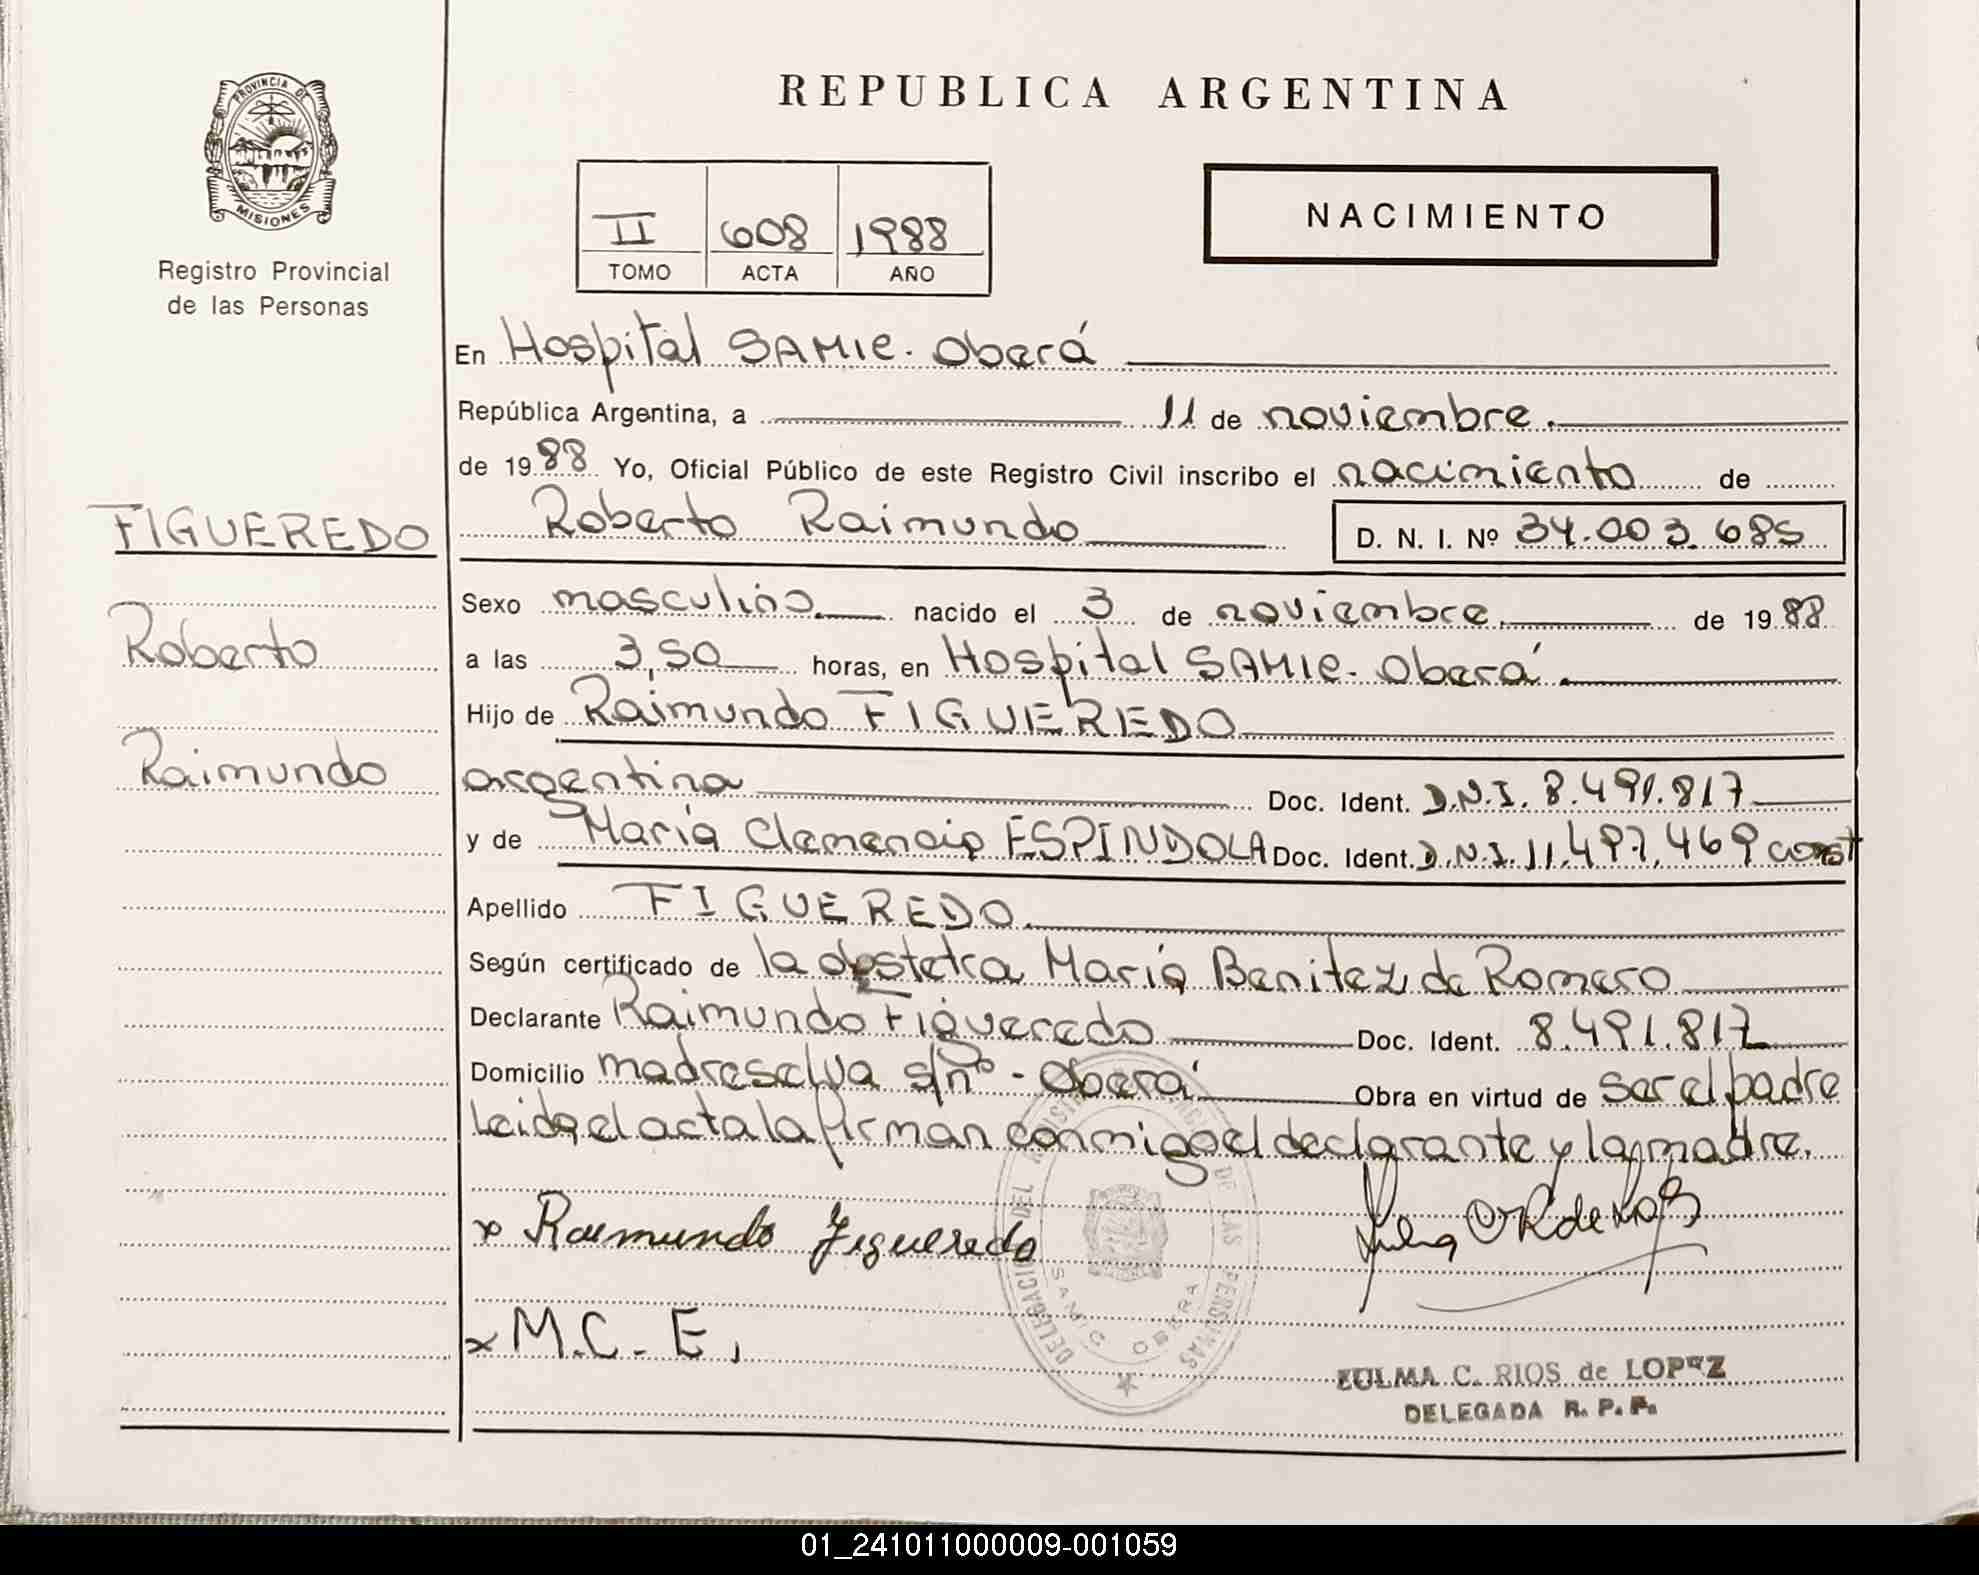 PROVINCIA DE
MISIONES
Registro Provincial
de las Personas
FIGUEREDO
Roberto
Raimundo
REPUBLICA ARGENTINA
II 608 1988
TOMO ACTA AÑO
NACIMIENTO
En Hospital SAMIC. Oberá
República Argentina, a 11 de noviembre.
de 1988 Yo, Oficial Público de este Registro Civil inscribo el nacimiento de
Roberto Raimundo D. N. I. Nº 34.003.685
Sexo masculino. nacido el 3 de noviembre. de 1988
a las 3,50 horas, en Hospital SAMIC. Oberá.
Hijo de Raimundo FIGUEREDO
argentina Doc. Ident. D.N.I. 8.491.817
y de María Clemencia ESPINDOLA Doc. Ident. D.N.I. 11.497.469 const
Apellido FIGUEREDO.
Según certificado de la obstetra María Benitez de Romero
Declarante Raimundo Figueredo Doc. Ident. 8.491.817
Domicilio madreselva s/nº - Oberá Obra en virtud de ser el padre
Leida el acta la firman conmigo el declarante y la madre.
x Raimundo Figueredo
x M.C.E.
DELEGACION DEL REGISTRO PROVINCIAL DE LAS PERSONAS
SAMIC OBERA
ZULMA C. RIOS de LOPEZ
DELEGADA R. P. P.
01_241011000009-001059